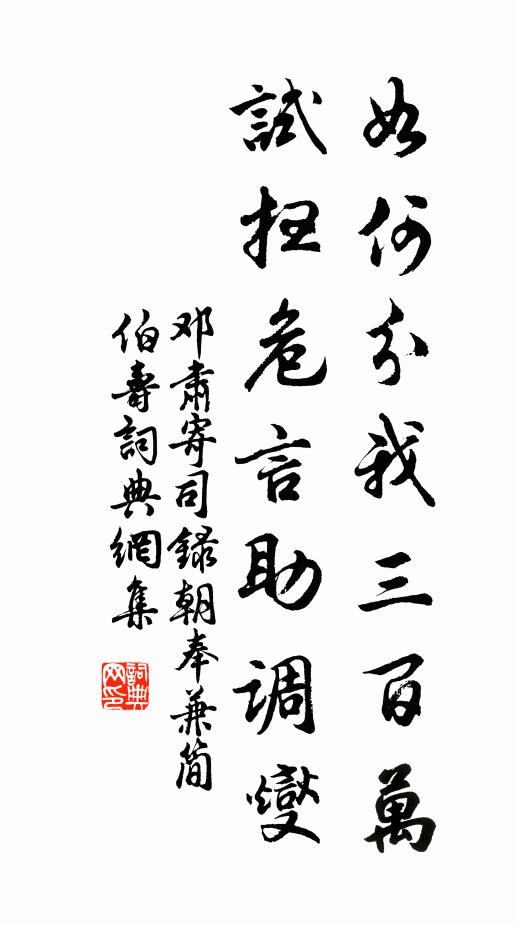 如何分我三百萬
試抂危言助調燮
邓肅寄司録朝奉兼简
伯壽詞典網集
詞典网印